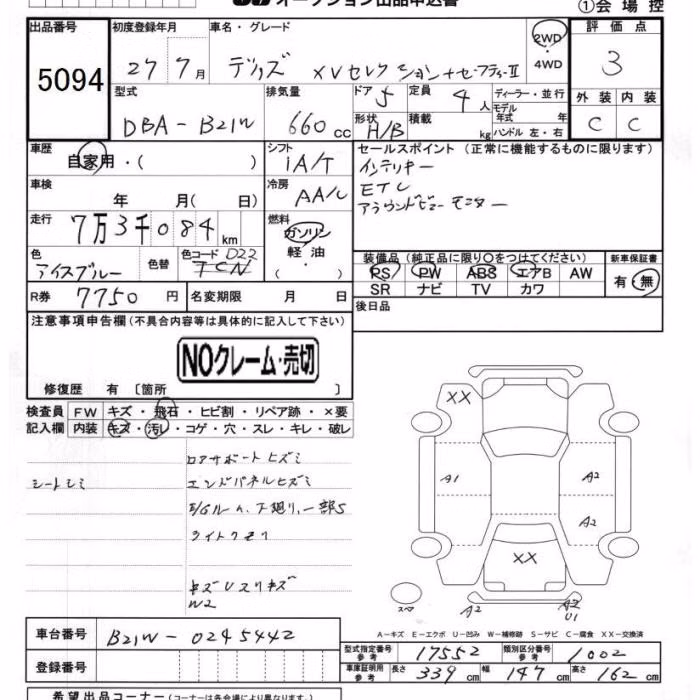 オークション出品申込書
①会場控
出品番号 初度登録年月 車名・グレード 評価点
5094
27 7月 デリズ XVセレクション+セーフティーⅡ 2WD ・ 4WD 3
型式 排気量 ドア 5 定員 4人 ディーラー・並行 外装 内装
DBA-B21W 660cc 形状 H/B 積載 kg モデル年式 年 ハンドル 左・右 C C
車歴 シフト セールスポイント (正常に機能するものに限ります)
自家用・( ) IA/T インテリキー
車検 冷房 ETC
年 月( 日) AA/C アラウンドビューモニター
走行 燃料
7万3千084km ガソリン
軽油
( )
色 色替 色コード D22 装備品 (純正品に限り○をつけてください) 新車保証書
アイスブルー PS PW ABS エアB AW 有・無
SR ナビ TV カワ
R券 7750円 名変期限 月 日 後日品
注意事項申告欄(不具合内容等は具体的に記入して下さい)
NOクレーム・売切
修復歴 有 〔箇所 〕
検査員 FW キズ・飛石・ヒビ割・リペア跡・×要
記入欄 内装 キズ・汚レ・コゲ・穴・スレ・キレ・破レ
コアサポートヒズミ
シートシミ エンドパネルヒズミ
E/Gルーム、下廻り、一部S
ライトクモリ
キズUスリキズ
W2
XX
A1 A2
A2
XX
スペア A2 A2
U1
A-キズ E-エクボ U-凹み W-補修跡 S-サビ C-腐食 XX-交換済
車台番号 B21W-0245442
型式指定番号 参考 17552 類別区分番号 参考 1002
登録番号 車庫証明用 参考 長さ 339cm 幅 147cm 高さ 162cm
希望出品コーナー(コーナーは各会場により異なります。)